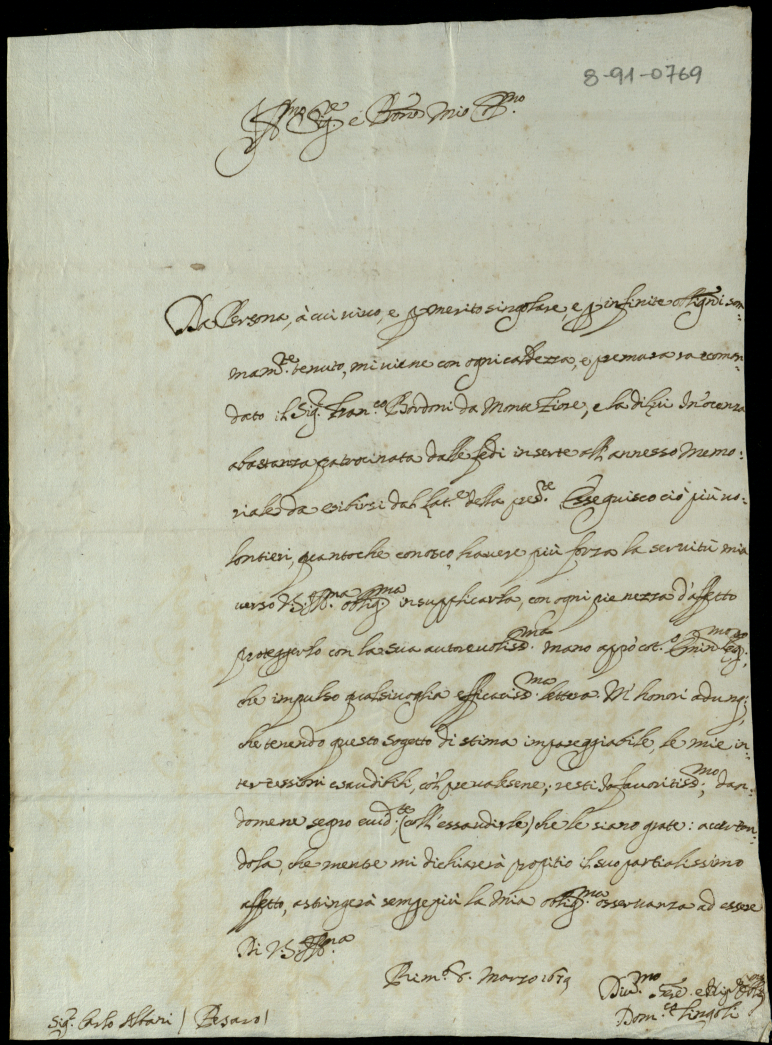 8-91-0769
Ill.mo Sig.re e Pron Mio Col.mo
Da Persona, à cui vivo, e p merito singolare, e p infinite oblig.ni som=
mam.te tenuto, mi viene con ogni caldezza, e premura racoman=
dato il Sig.r Fran.co Bordoni da Monte Fiore, e la di lui In'ocenza
abastanza patrocinata dalle fedi inserte all'annesso Memo=
riale da esibirsi dal Lat.e della pres.te Esseguisco ciò più vo=
lontieri, quanto che conosco havere più forza la servitù mia
verso V.S. Ill.ma oblig.ma in supplicarla, con ogni pienezza d'affetto
proteggerlo con la sua autorevoliss.ma mano appò cot.o Emin.mo Leg.to,
che impulso qualsivoglia efficaciss.mo lettera. M'honori adunq;
che tenendo questo sogetto di stima impareggiabile, le mie in=
tercessioni esaudibili, col prevalersene; resti Io favoritiss.mo, dan=
domene segno evid.te, (coll'essaudirle) che le siano grate: accertan=
dola, che mentre mi dichiarerà propitio il suo partialissimo
affetto, astringerà sempre più la mia oblig.ma osservanza ad essere
Di V.S. Ill.ma
Rim.i 8. Marzo 1679
Div.mo Ser.e e
Dom.co Lingoli
Sig.r Carlo Altani / Pesaro /